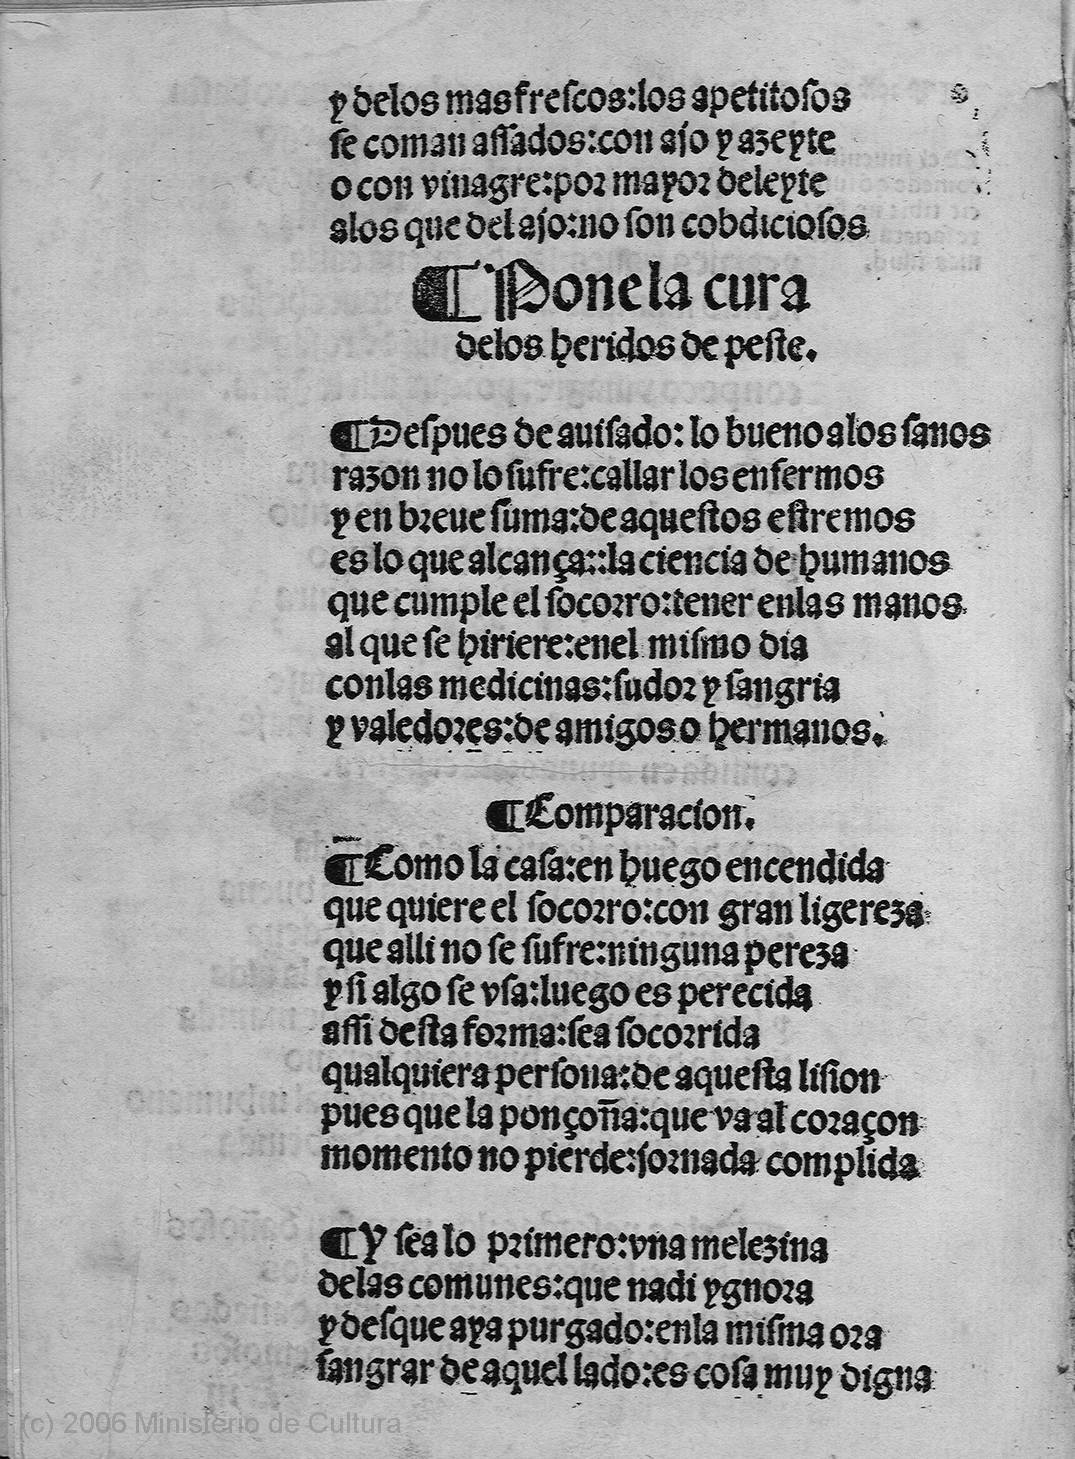 y delos mas frescos:los apetitosos
se coman assados:con ajo y azeyte
o con vinagre:por mayor deleyte
alos que del ajo:no son cobdiciosos
¶ Pone la cura
delos heridos de peste.
¶ Despues de auisado: lo bueno alos sanos
razon no lo sufre:callar los enfermos
y en breue suma:de aquestos estremos
es lo que alcança::la ciencia de humanos
que cumple el socorro:tener enlas manos
al que se hiriere:enel mismo dia
conlas medicinas:sudor y sangria
y valedores:de amigos o hermanos.
¶ Comparacion.
¶ Como la casa:en huego encendida
que quiere el socorro:con gran ligereza
que alli no se sufre:ninguna pereza
y si algo se vsa:luego es perecida
assi desta forma:sea socorrida
qualquiera persona:de aquesta lision
pues que la ponçoña:que va al coraçon
momento no pierde:jornada complida
¶ Y sea lo primero:vna melezina
delas comunes:que nadi ygnora
y desque aya purgado:enla misma ora
sangrar de aquel lado:es cosa muy digna
(c) 2006 Ministerio de Cultura